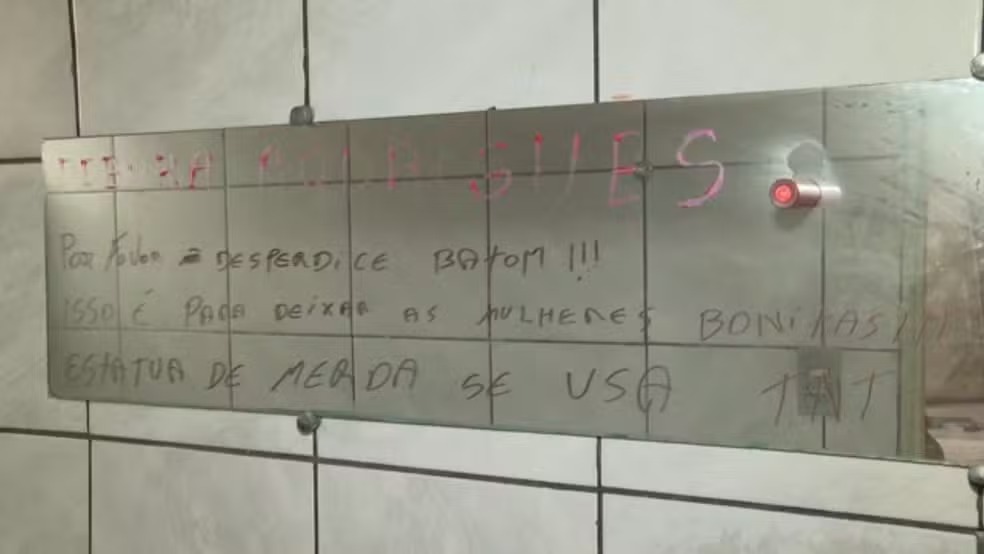 DÉBORA RODRIGUES
Por favor DESPERDICE BATOM !!!
ISSO É PARA DEIXAR AS MULHERES BONITAS
ESTATUA DE MERDA SE USA TNT